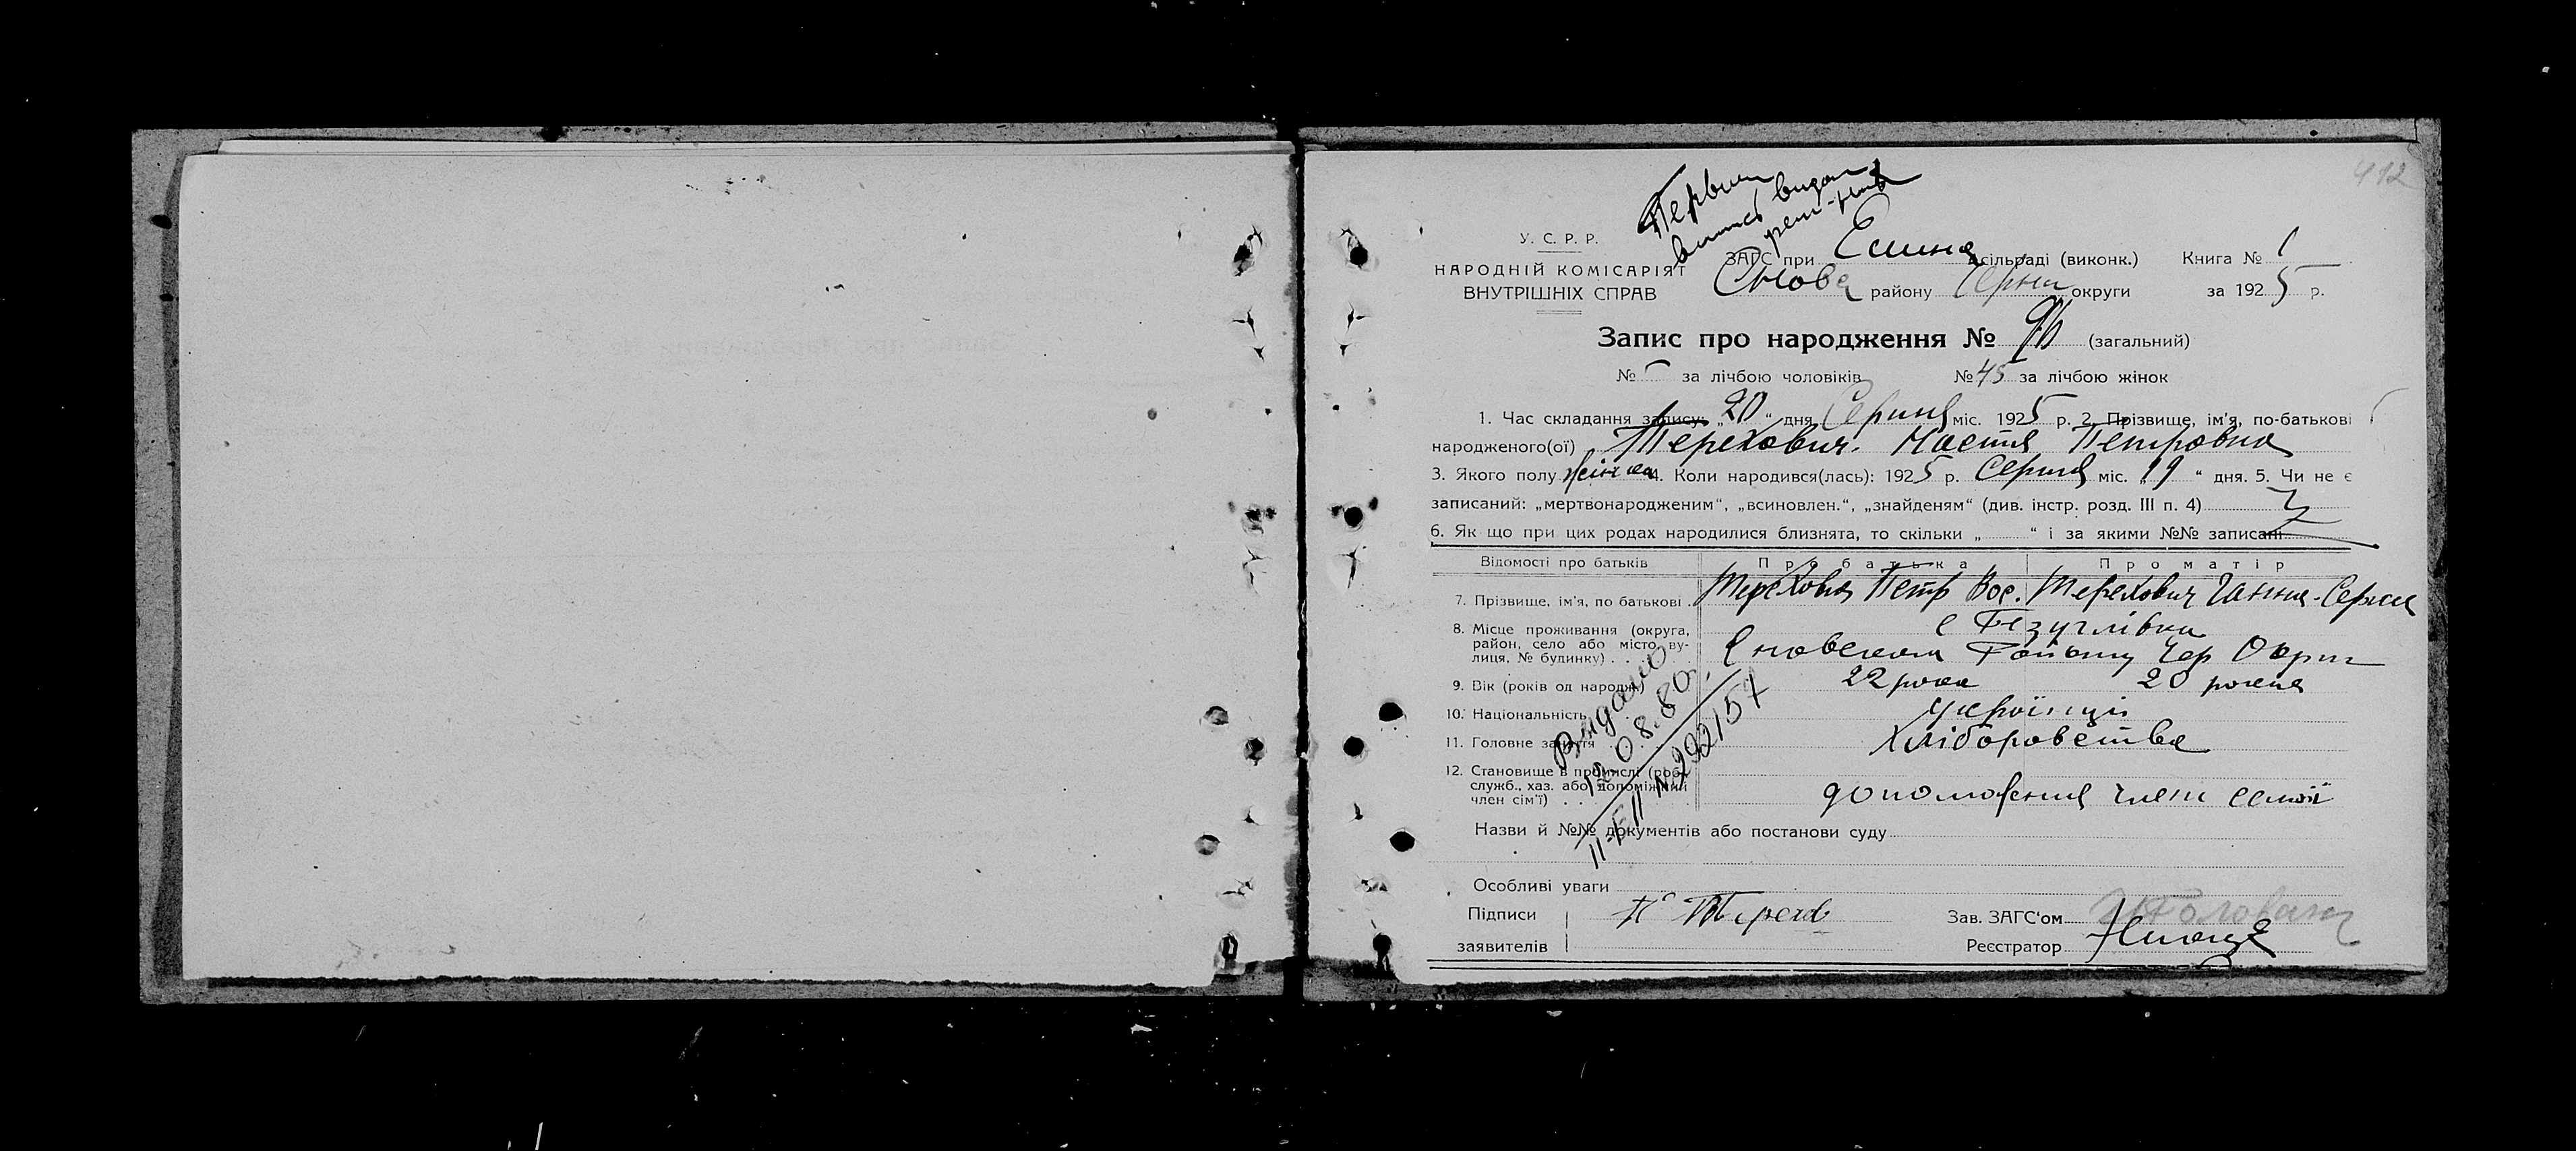 412
Первич
У. С. Р. Р.
НАРОДНІЙ КОМІСАРІЯТ
ВНУТРІШНІХ СПРАВ
ЗАГС при сільраді (виконк.) Книга № 1
району округи за 1925 р.
Запис про народження № (загальний)
№ за лічбою чоловіків № 45 за лічбою жінок
1. Час складання запису: „20“ дня Серпня міс. 1925 р. 2. Прізвище, ім’я, по-батькові
народженого(ої) Терехович Настя Петровна
3. Якого полу жіноч 4. Коли народився(лась): 1925 р. Серпня міс. „19“ дня. 5. Чи не є
записаний: „мертвонародженим“, „всиновлен.“, „знайденям“ (див. інстр. розд. III п. 4)
6. Як що при цих родах народилися близнята, то скільки „ “ і за якими №№ записані
Відомості про батьків Про батька Про матір
7. Прізвище, ім’я, по батькові . Терехович Петр Вас. Терехович Ганна
8. Місце проживання (округа, район, село або місто, вулиця, № будинку) . . . с Безуглівка
Сновського Району Чер Округ
9. Вік (років од народж.) 22 роки 20 років
10. Національність українці
11. Головне заняття Хліборобства
12. Становище в промислі (роб., служб., хаз. або допоміжний член сім’ї) . . допоможний член семії
Назви й №№ документів або постанови суду
Особливі уваги
Підписи
заявителів
П Терехов
Зав. ЗАГС‘ом
Реєстратор
Видано
12.08.80
II-БП №292157